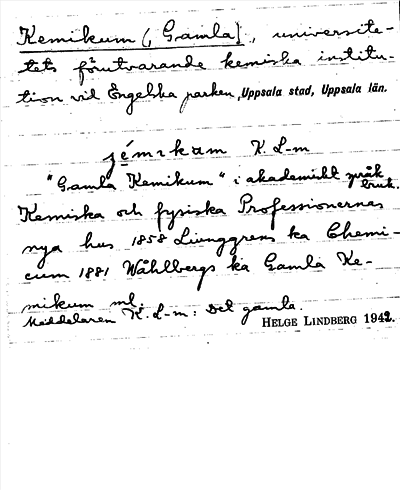 Kemikum (, Gamla), universite-
tets förutvarande kemiska institu-
tion vid Engelska parken, Uppsala stad, Uppsala län.
jémıkum K. L-m
"Gamla Kemikum" i akademiskt språk
bruk.
Kemiska och fysiska Professionernas
nya hus 1858 Ljunggrens ka Chemi-
cum 1881 Wåhlbergs ka Gamla Ke-
mikum ml.
Meddelaren K. L-m: Det gamla.
HELGE LINDBERG 1942.